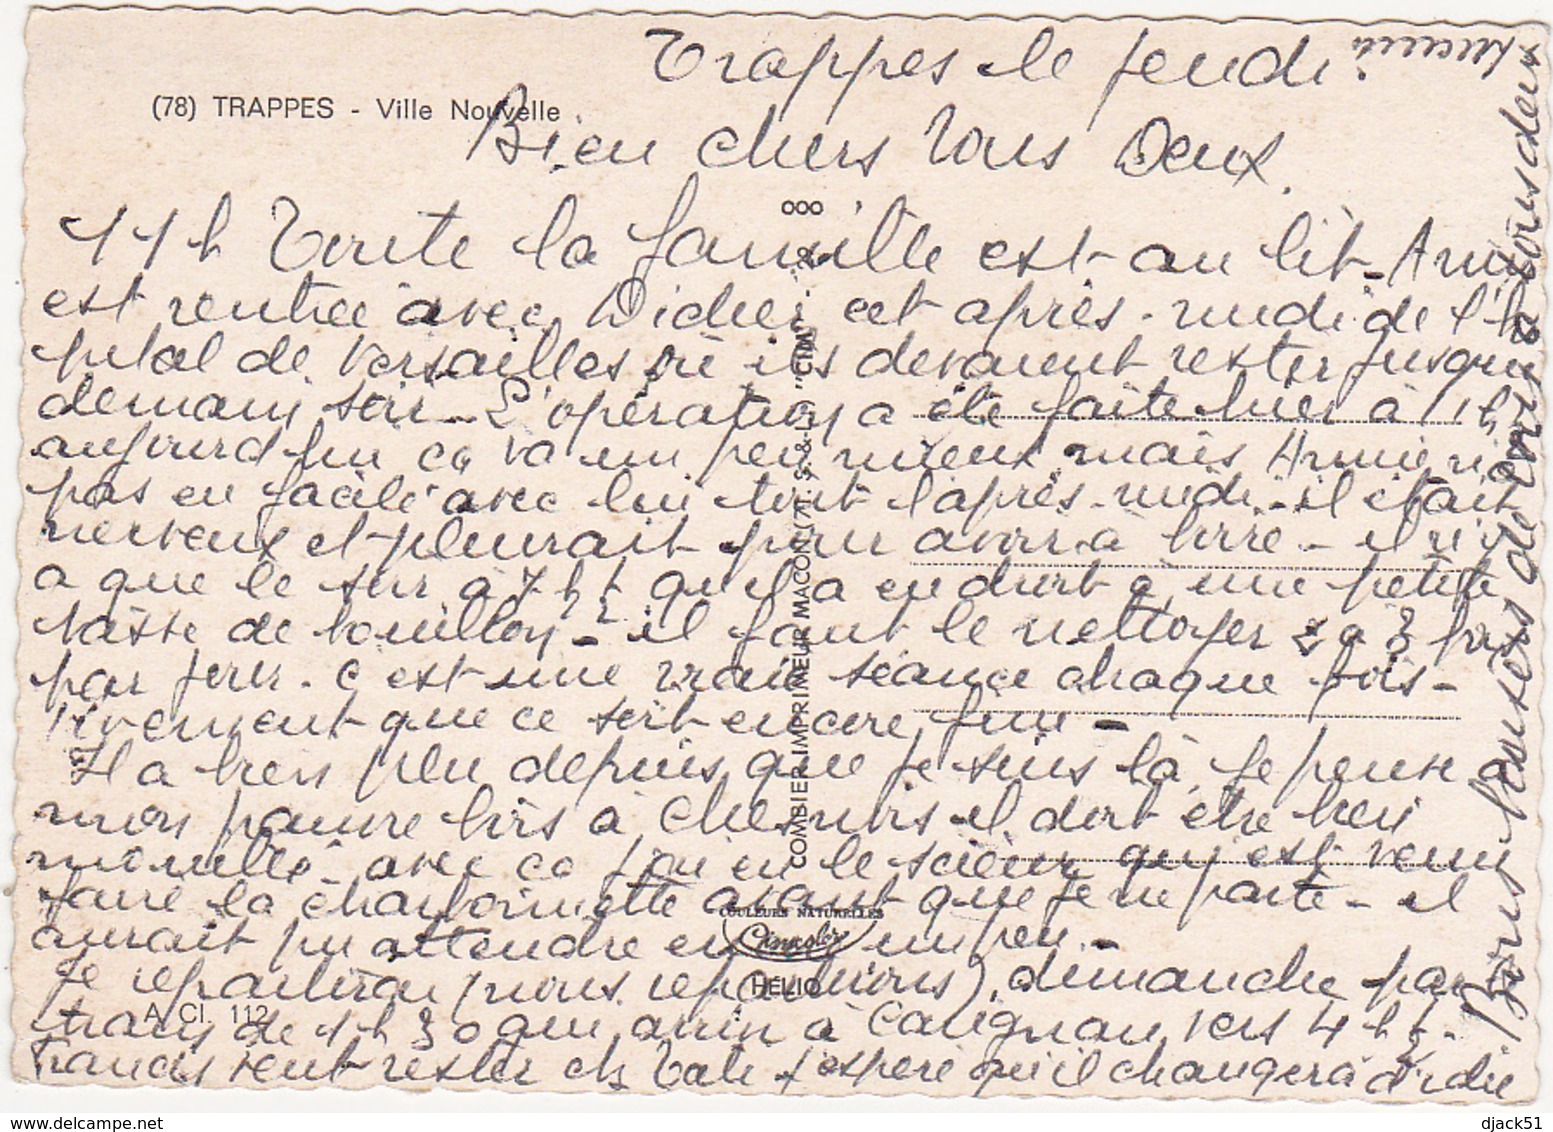 Trappes le jeudi
(78) TRAPPES - Ville Nouvelle
Bien chers Vous Deux.
11h Toute la famille est au lit - Annie
est rentrée avec Didier cet après-midi de l'hô
pital de Versailles où ils devaient rester jusqu'à
demain soir - L'opération a été faite hier à 11h
aujourd'hui ca va un peu mieux mais Annie n'a
pas eu facile avec lui tout l'après-midi - il était
nerveux et pleurait pour avoir à boire - il n'y
a que le soir à 7h½ qu'il a eu droit à une petite
tasse de bouillon - il faut le nettoyer 2 à 3 fois
par jour. C'est une vraie séance chaque fois -
vivement que ce soit encore fini -
Il a bien plu depuis que je suis là, je pense à
mon pauvre bois à Chesnois il doit être bien
mouillé - avec ca j'ai eu le scieur qui est venu
faire la charbonnette avant que je ne parte - il
aurait pu attendre encore un peu -
Je repartirai (nous repartirons) dimanche par
train de 1h30 qui arrive à Carignan vers 4h½.
Francis veut rester chez Tata j'espère qu'il changera d'idée
Bons baisers de nous à tous deux
COMBIER IMPRIMEUR MACON (71. S.-&-L.) "CIM"
COULEURS NATURELLES
Cimcolor
HÉLIO
A. Cl. 112
delcampe.net
djack51